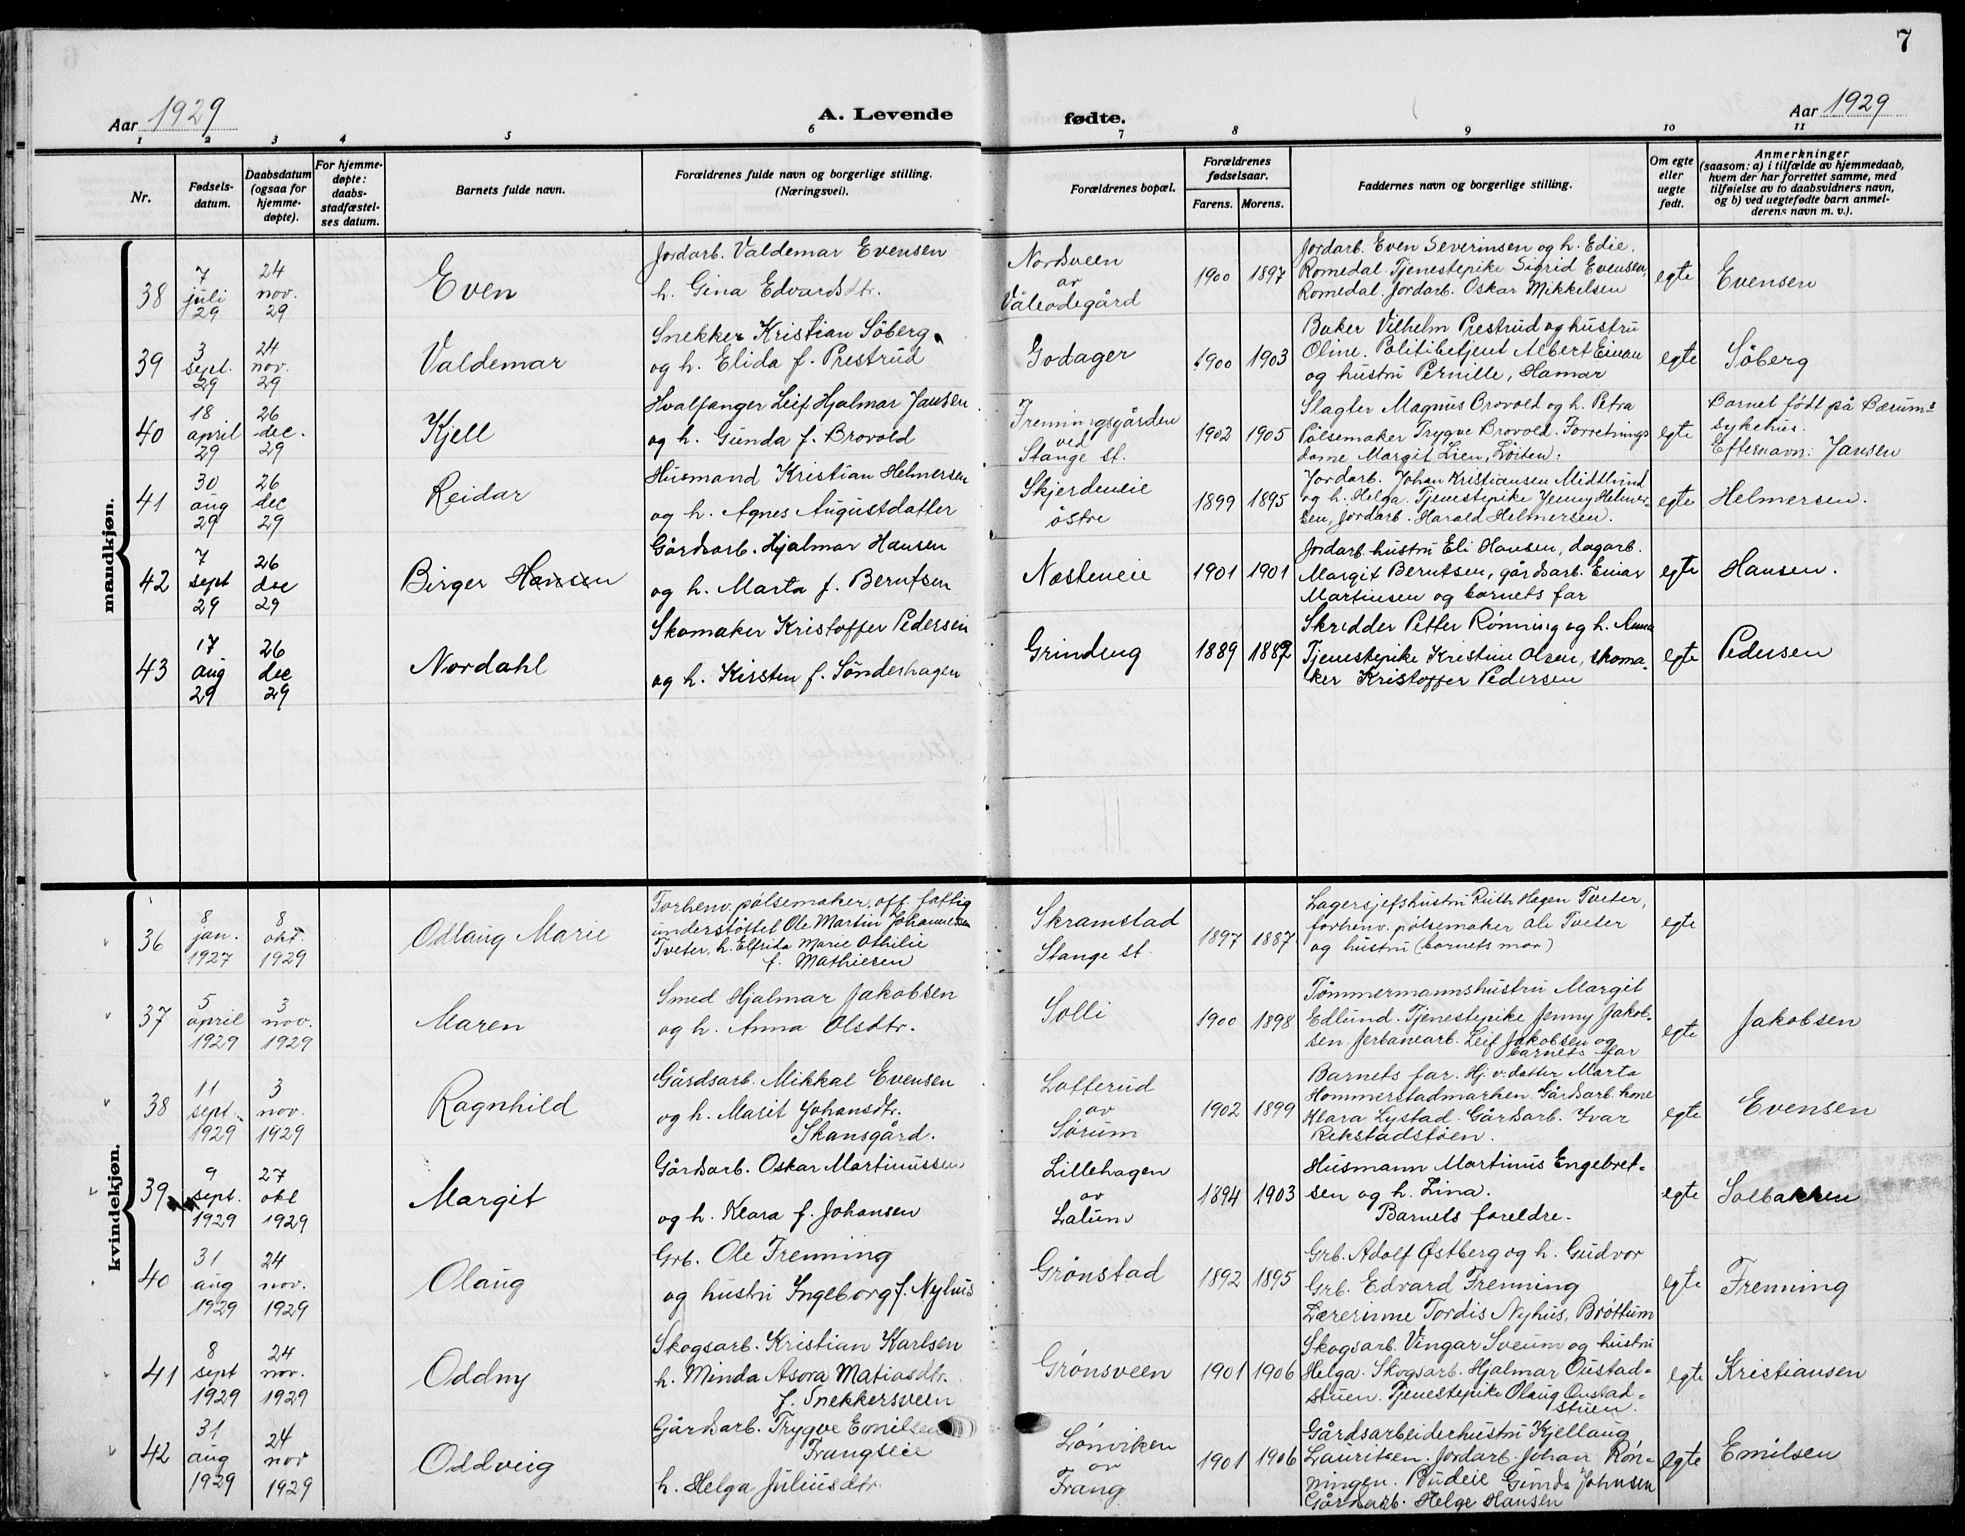 7
Aar 1929
A. Levende fødte.
Aar 1929
1 2 3 4 5 6 7 8 9 10 11
Nr.
Fødsels-
datum.
Daabsdatum
(ogsaa for
hjemme-
døpte).
For hjemme-
døpte:
daabs-
stadfæstel-
ses datum.
Barnets fulde navn.
Forældrenes fulde navn og borgerlige stilling.
(Næringsvei).
Forældrenes bopæl.
Forældrenes
fødselsaar.
Farens. Morens.
Faddernes navn og borgerlige stilling.
Om egte
eller
uegte
født.
Anmerkninger
(saasom: a) i tilfælde av hjemmedaab,
hvem der har forrettet samme, med
tilføielse av to daabsvidners navn,
og b) ved uegtefødte barn anmel-
derens navn m. v.).
mandkjøn.
38
7
juli
29
24
nov.
29
Even
Jordarb. Valdemar Evensen
h. Gina Edvardsdtr.
Nordsveen
av
Våleodegård
1900 1897
Jordarb. Even Severinsen og h. Edie,
Romedal. Tjenestepike Sigrid Evensen,
Romedal. Jordarb. Oskar Mikkelsen
egte
Evensen
39
3
sept.
29
24
nov.
29
Valdemar
Snekker Kristian Söberg
og h. Elida f. Prestrud
Godager
1900 1903
Baker Vilhelm Prestrud og hustru
Oline. Politibetjent Albert Einan
og hustru Pernille, Hamar
egte
Söberg
40
18
april
29
26
dec.
29
Kjell
Hvalfanger Leif Hjalmar Jansen
og h. Gunda f. Brovold
Frenningsgården
ved
Stange st.
1902 1905
Slagter Magnus Brovold og h. Petra
Pölsemaker Trygve Brovold. Forretnings
dame Margit Lien, Löiten.
egte
Barnet født på Bærums
sykehus.
Efternavn: Jansen
41
30
aug
29
26
dec
29
Reidar
Husmand Kristian Helmersen
og h. Agnes Augustdatter
Skjerdeneie
östre
1899 1895
Jordarb. Johan Kristiansen Midtlund
og h. Helga. Tjenestepike Jenny Helmer-
sen, Jordarb. Harald Helmersen.
egte
Helmersen.
42
7
sept
29
26
dec
29
Birger Hansen
Gårdsarb. Hjalmar Hansen
og h. Marta f. Berntsen
Næsteneie
1901 1901
Jordarb. hustru Eli Hansen, dagarb.
Margit Berntsen, gårdsarb. Einar
Martinsen og barnets far
egte
Hansen.
43
17
aug
29
26
dec
29
Nordahl
Skomaker Kristoffer Pedersen
og h. Kirsten f. Sönderhagen
Grindeng
1889 1882
Skredder Petter Rönning og h. Anna
Tjenestepike Kristine Olsen, skoma-
ker Kristoffer Pedersen
egte
Pedersen
kvindekjøn.
36
8
jan.
1927
8
okt.
1929
Odlaug Marie
Forhenv. pölsemaker, off. fattig
understöttet Ole Martin Johannesen
Tveter, h. Elfrida Marie Othilie
f. Mathiesen
Skramstad
Stange st.
1897 1887
Lagersjefshustru Ruth Hagen Tveter,
forhenv. pölsemaker Ole Tveter
og hustru (barnets mor)
egte
37
5
april
1929
3
nov.
1929
Maren
Smed Hjalmar Jakobsen
og h. Anna Olsdtr.
Solli
1900 1898
Tömmermannshustru Margit
Edlund. Tjenestepike Jenny Jakob-
sen. Jerbanearb. Leif Jakobsen og
barnets far
egte
Jakobsen
38
11
sept.
1929
3
nov.
1929
Ragnhild
Gårdsarb. Mikkal Evensen
og h. Marit Johansdtr.
Skansgård.
Lotterud
av
Sörum
1902 1899
Barnets far. Hj. v. datter Marta
Hommerstadmarken. Gårdsarb. kone
Klara Lystad. Gårdsarb. Ivar
Rekstadstöen.
egte
Evensen
39
9
sept.
1929
27
okt
1929
Margit
Gårdsarb. Oskar Martinussen
og h. Klara f. Johansen
Lillehagen
av
Lalum
1894 1903
Husmann Martinus Engebret-
sen og h. Lina.
Barnets foreldre.
egte
Solbakken
40
31
aug
1929
24
nov.
1929
Olaug
Grb. Ole Frenning
og hustru Ingeborg f. Nyhus
Grönstad
1892 1895
Grb. Adolf Østberg og h. Gudvor
Grb. Edvard Frenning
Lærerinne Tordis Nyhus, Bröttum
egte
Frenning
41
8
sept
1929
24
nov.
1929
Oddny
Skogsarb. Kristian Karlsen
h. Minda Asora Matiasdtr.
f. Snekkersveen
Grönsveen
1901 1906
Skogsarb. Vingar Sveum og hustru
Helga. Skogsarb. Hjalmar Oustad-
stuen. Tjenestepike Olaug Oustad-
stuen.
egte
Kristiansen
42
31
aug
1929
24
nov
1929
Oddveig
Gårdsarb. Trygve Emilsen
Frangseie
h. Helga Juliusdtr.
Lönviken
av
Frang
1901 1906
Gårdsarbeiderhustru Kjellaug
Lauritsen. Jordarb. Johan Rön-
ningen. Budeie Gunda Johnsen
Gårdsarb. Helge Hansen
egte
Emilsen